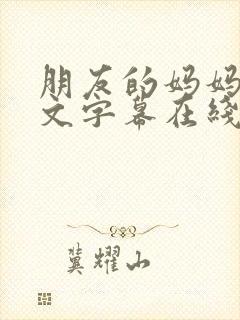 朋友的妈妈
文字幕在线
冀耀山